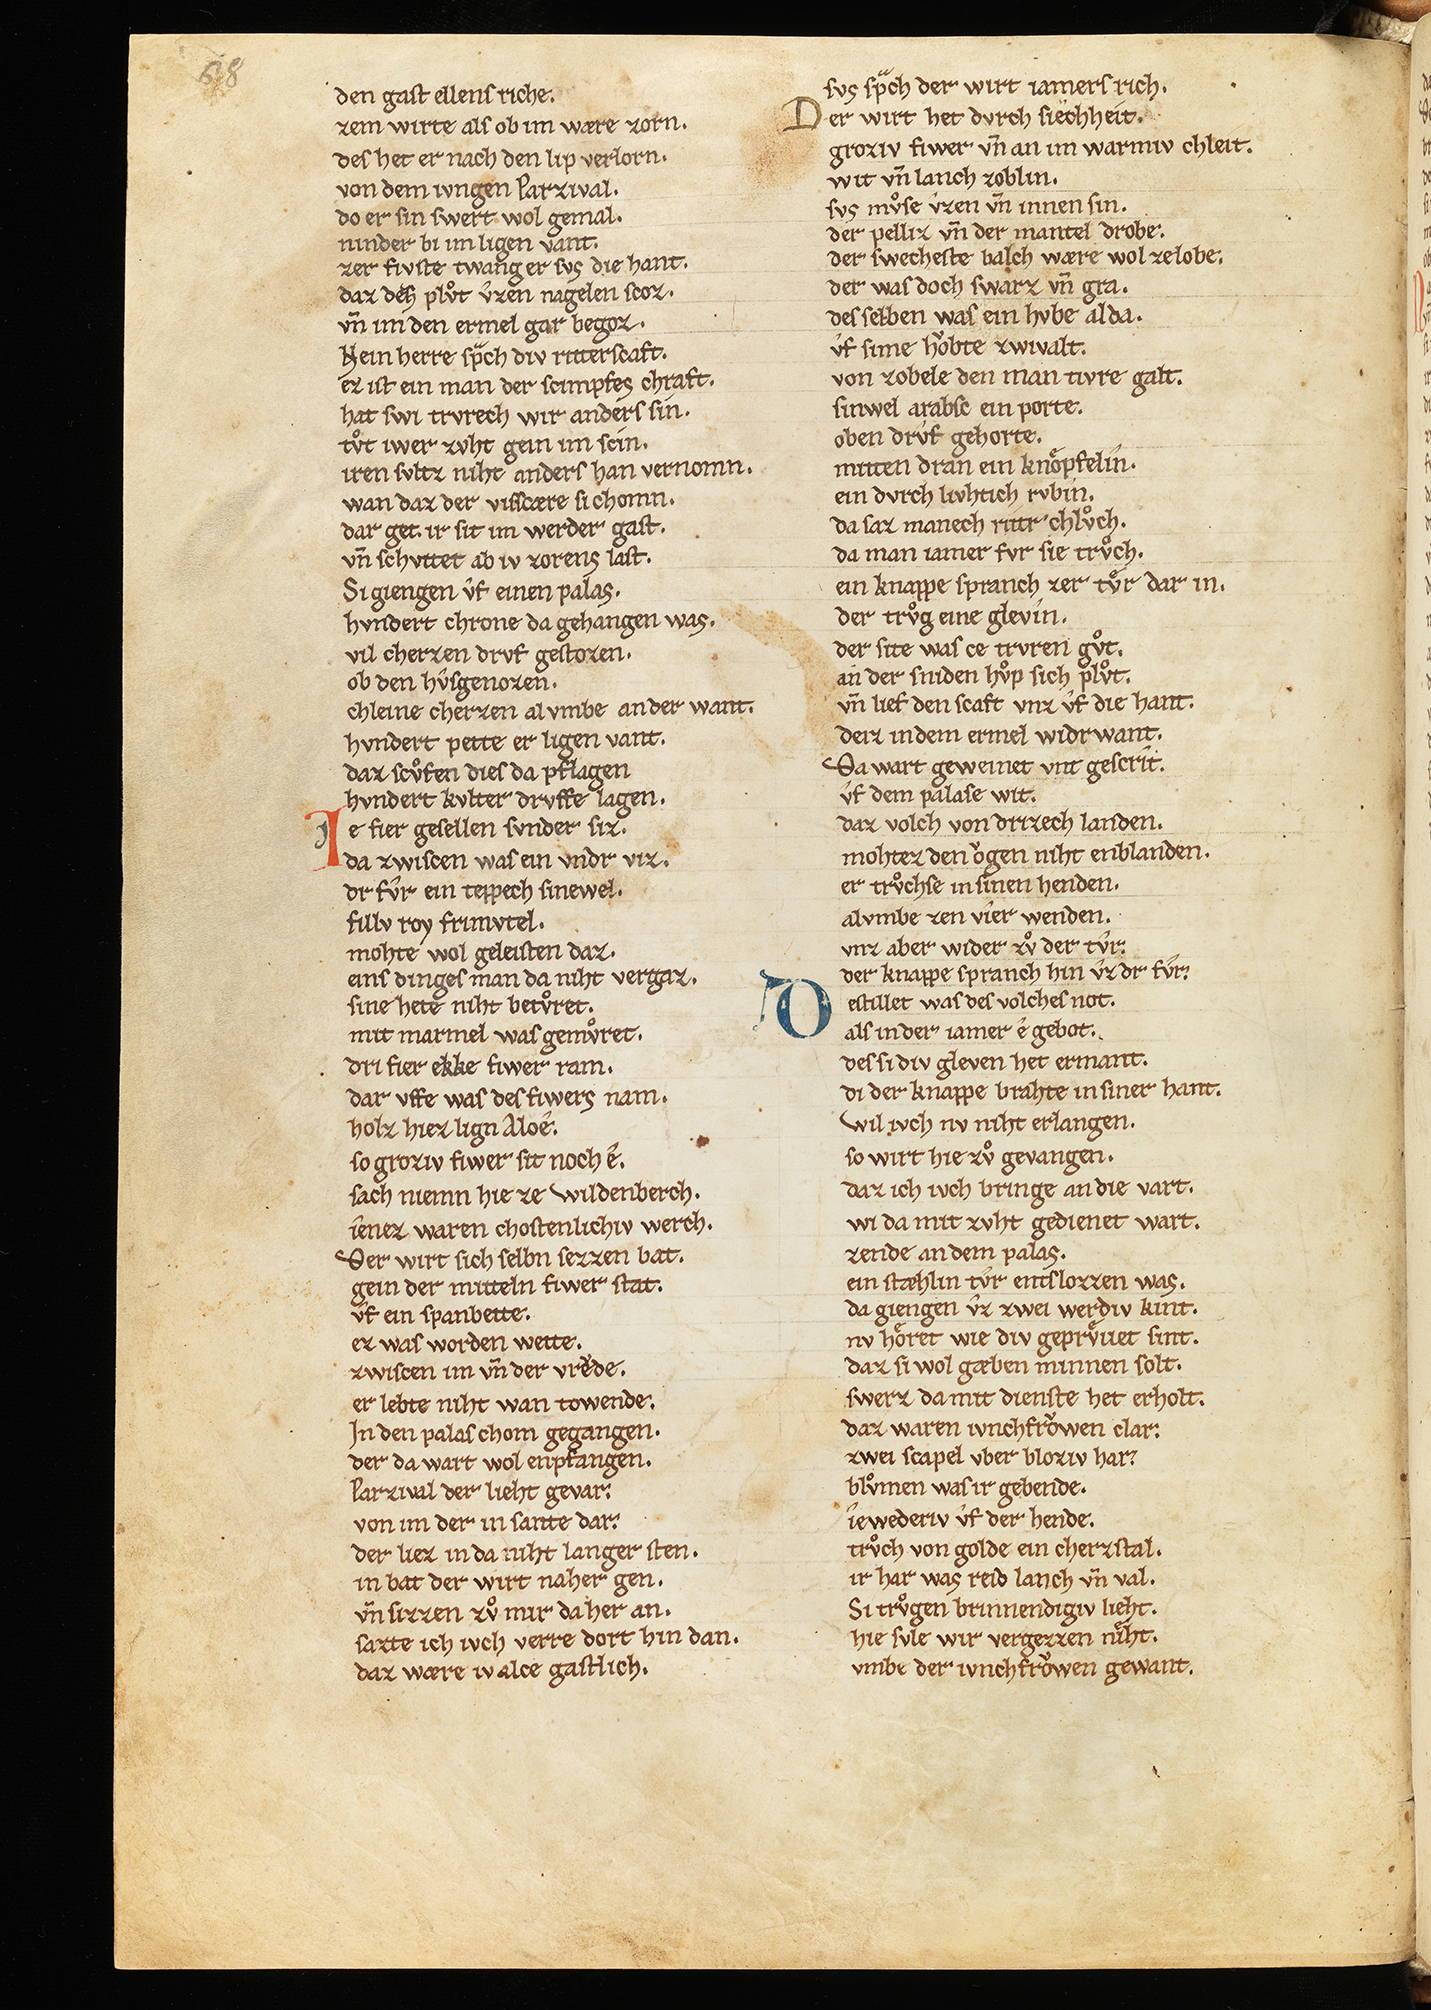 68
den gast ellens riche.
zem wirte als ob im wære zorn.
des het er nach den lip verlorn.
von dem ivngen Parzival.
do er sin swert wol gemal.
ninder bi im ligen vant.
zer fivste twanger svs die hant.
daz dez plvͦt vzen nagelen scoz.
vn̄ im den ermel gar begoz.
Nein herre sp̈ch div ritterscaft.
ez ist ein man der scimpfes chraft.
hat swi trvrech wir anders sin.
tvͦt iwer zvht gein im scin.
iren svltz niht anders han vernomn.
wan daz der visscære si chomn.
dar get. ir sit im werder gast.
vn̄ schvttet ab iv zorens last.
Si giengen vf einen palas.
hvndert chrone da gehangen was.
vil cherzen drvf gestozen.
ob den hvsgenozen.
chleine cherzen al vmbe an der want.
hvndert pette er ligen vant.
daz scvͦfen dies da pflagen
hvndert kvlter drvffe lagen.
Ie fier gesellen svnder siz.
da zwiscen was ein vndr viz.
dr fvr ein teppech sinewel.
fillv roy frimvtel.
mohte wol geleisten daz.
eins dinges man da niht vergaz.
sine hete niht betvͦret.
mit marmel was gemvͦret.
dri fier ekke fiwer ram.
dar vffe was des fiwers nam.
holz hiez lign Aloe.
so groziv fiwer sit noch e.
sach niemn hie ze wildenberch.
ienez waren chostenlichiv werch.
Der wirt sich selbn sezzen bat.
gein der mitteln fiwer stat.
vf ein spanbette.
ez was worden wette.
zwiscen im vn̄ der vrevde.
er lebte niht wan towende.
In den palas chom gegangen.
der da wart wol enpfangen.
Parzival der lieht gevar.
von im der in sante dar.
der liez in da niht langer sten.
in bat der wirt naher gen.
vn̄ sizzen zvͦ mir da her an.
sazte ich ivch verre dort hin dan.
daz wære iv alce gastlich.
svs sp̈ch der wirt iamers rich.
Der wirt het dvrch siechheit.
groziv fiwer vn̄ an im warmiv chleit.
wit vn̄ lanch zoblin.
svs mvͦse vzen vn̄ innen sin.
der pelliz vn̄ der mantel drobe.
der swecheste balch wære wol zelobe.
der was doch swarz vn̄ gra.
des selben was ein hvbe alda.
vf sime hoͮbte zwivalt.
von zobele den man tivre galt.
sinwel arabsc ein porte.
oben drvf gehorte.
mitten dran ein knoͤpfelin.
ein dvrch livhtich rvbin.
da saz manech rittr chlvͦch.
da man iamer fvr sie trvͦch.
ein knappe spranch zer tvͤr dar in.
der trvͦg eine glevin.
der site was ce trvren gvͦt.
an der sniden hvͦp sich plvͦt.
vn̄ lief den scaft vnz vf die hant.
deiz in dem ermel widrwant.
Da wart geweinet vnt gescrit.
vf dem palase wit.
daz volch von drizech landen.
mohtez den oͮgen niht enblanden.
er trvͦchse in sinen henden.
alvmbe zen vier wenden.
vnz aber wider zvͦ der tvr.
der knappe spranch hin vz dr fvr.
Gestillet was des volches not.
als in der iamer e gebot.
des si div gleven het ermant.
di der knappe brahte in siner hant.
wil ivch nv niht erlangen.
so wirt hie zvͦ gevangen.
daz ich ivch bringe an die vart.
wi da mit zvht gedienet wart.
zende an dem palas.
ein stæhlin tvr entslozzen was.
da giengen vz zwei werdiv kint.
nv hoͤret wie div geprvͤvet sint.
daz si wol gæben minnen solt.
swerz da mit dienste het erholt.
daz waren ivnchfroͮwen clar.
zwei scapel vber bloziv har.
blvͦmen was ir gebende.
iewederiv vf der hende.
trvͦch von golde ein cherzstal.
ir har was reid lanch vn̄ val.
Si trvͦgen brinnendigiv lieht.
hie svle wir vergezzen niht.
vmbe der ivnchfroͮwen gewant.